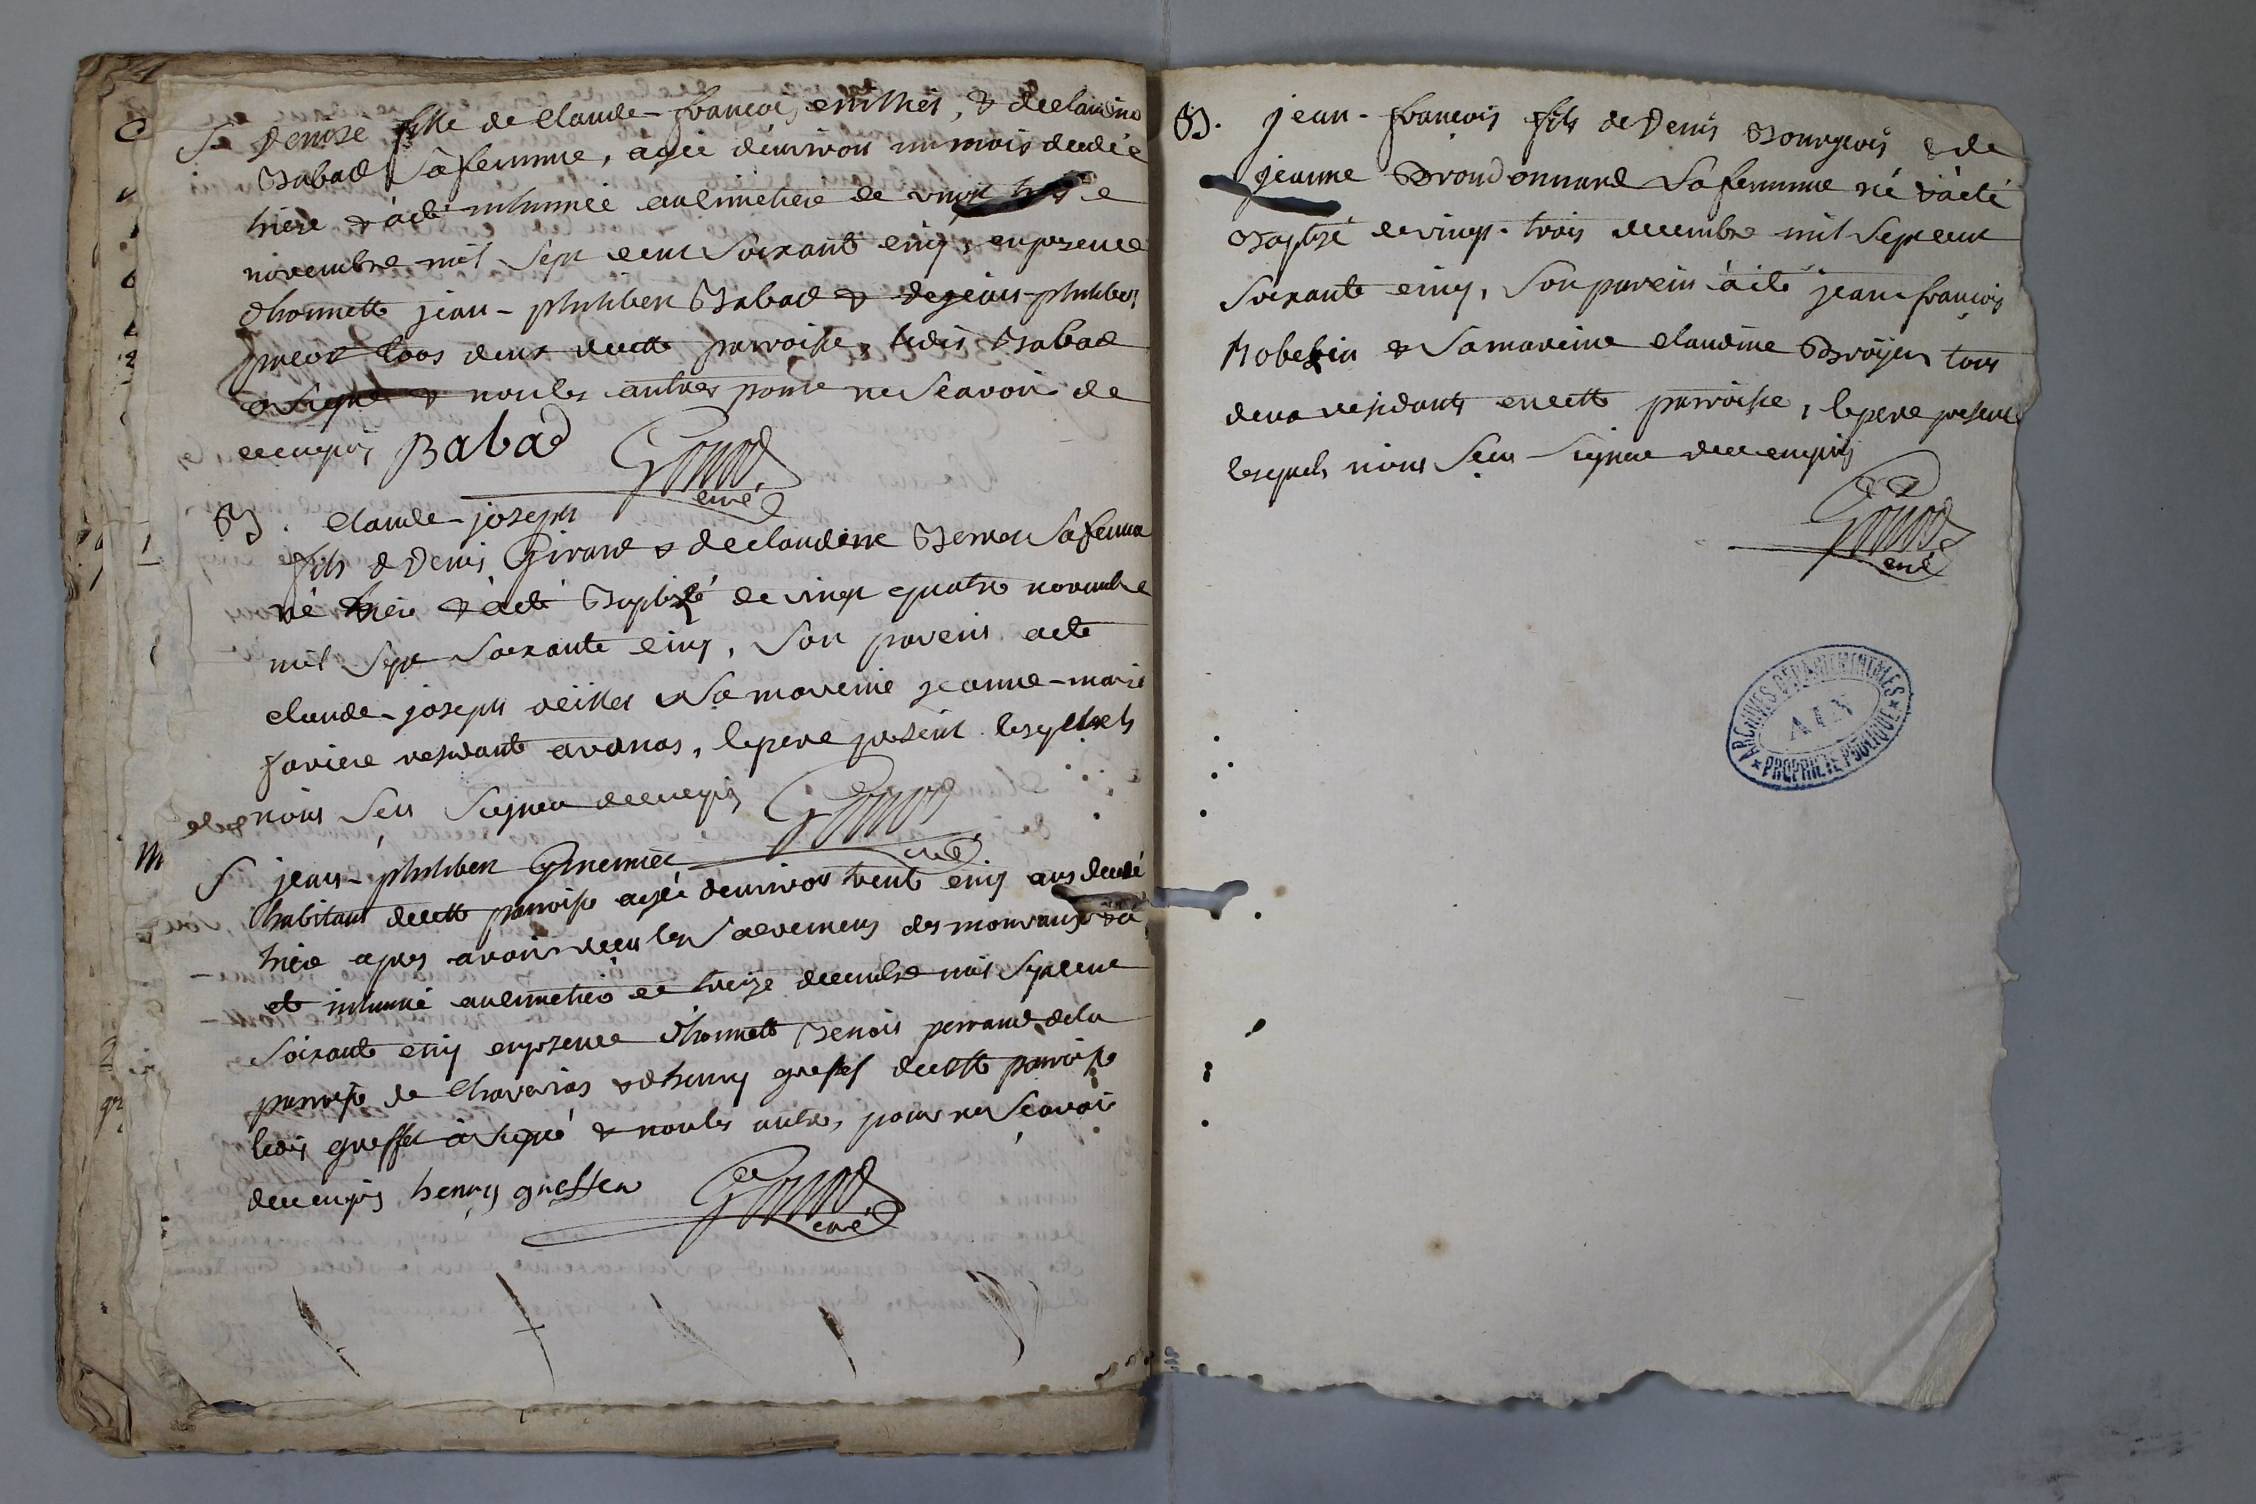 S. Denise fille de Claude-françois & de claudine
Babad Sa femme, agée d'environ un mois decedée
hier & a été inhumée au cimetiere ce vingt
novembre mil Sept cent Soixante cinq, en presence
d'honnette jean-philibert Babad & de jean-philibert
tous deux de cette parroisse, ledit Babad
a Signé & non les autres pour ne Scavoir de
ce enquis Babad Gonod
curé
B. Claude-joseph
fils de Denis Girard & de claudine Sa femme
né hier & a été Baptisé ce vingt quatre novembre
mil Sept Soixante cinq, Son parein a été
claude-joseph & Sa mareine jeanne-marie
residants a vanas, le pere present lesquels
n'ont Sçu Signer de ce enquis Gonod
curé
S jean-philibert
habitant de cette parroisse agée d'environ trente cinq ans decedé
hier apres avoir reçu les Sacremens des mourans & a
eté inhumé au cimetiere ce treize decembre mil Sept cent
Soixante cinq en presence d'honnette Benoit perraud de la
parroisse de Chaverias & d'henry greffet de cette parroisse
ledit greffet a Signé & non les autres, pour ne Scavoir
de ce enquis henry greffet Gonod
curé
B. jean-françois fils de Denis Bourgeois & de
jeanne Sa femme né & a été
Baptizé ce vingt-trois decembre mil Sept cent
Soixante cinq, Son parein a été jean françois
Robelin & Sa mareine claudine Broyer tous
deux residants en cette parroisse, le pere present
lesquels n'ont Sçu Signer de ce enquis
Gonod
curé
ARCHIVES DEPARTEMENTALES
AIN
PROPRIETE PUBLIQUE